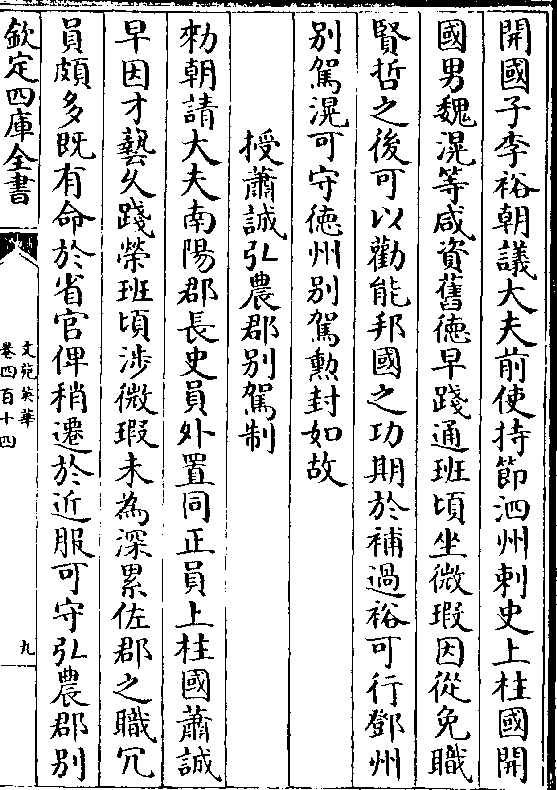 開國子李裕朝議大夫前使持節泗州刺史上柱國開
國男魏滉等咸資舊徳早踐通班頃坐微瑕因從免職
賢哲之後可以勸能邦國之功期於補過裕可行鄧州
别駕滉可守徳州别駕勲封如故
授蕭誠弘農郡别駕制
勑朝請大夫南陽郡長史員外置同正員上柱國蕭誠
早因才藝久踐榮班頃涉微瑕未為深累佐郡之職冗
員頗多既有命於省官俾稍遷於近服可守弘農郡别
欽定四庫全書
文苑英華
卷四百十四
九